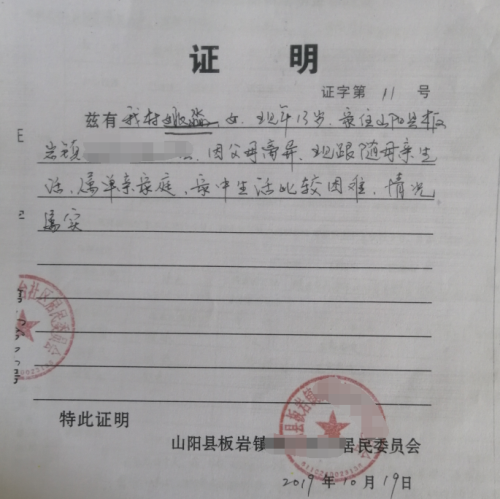 证 明
证字第 11 号
兹有 我村姚淼 女, 现年13岁, 家住山阳县板
岩镇 因父母离异, 现跟随母亲生
活, 属单亲家庭, 家中生活比较困难, 情况
属实
特此证明
山阳县板岩镇 居民委员会
2019 年 10 月 19 日